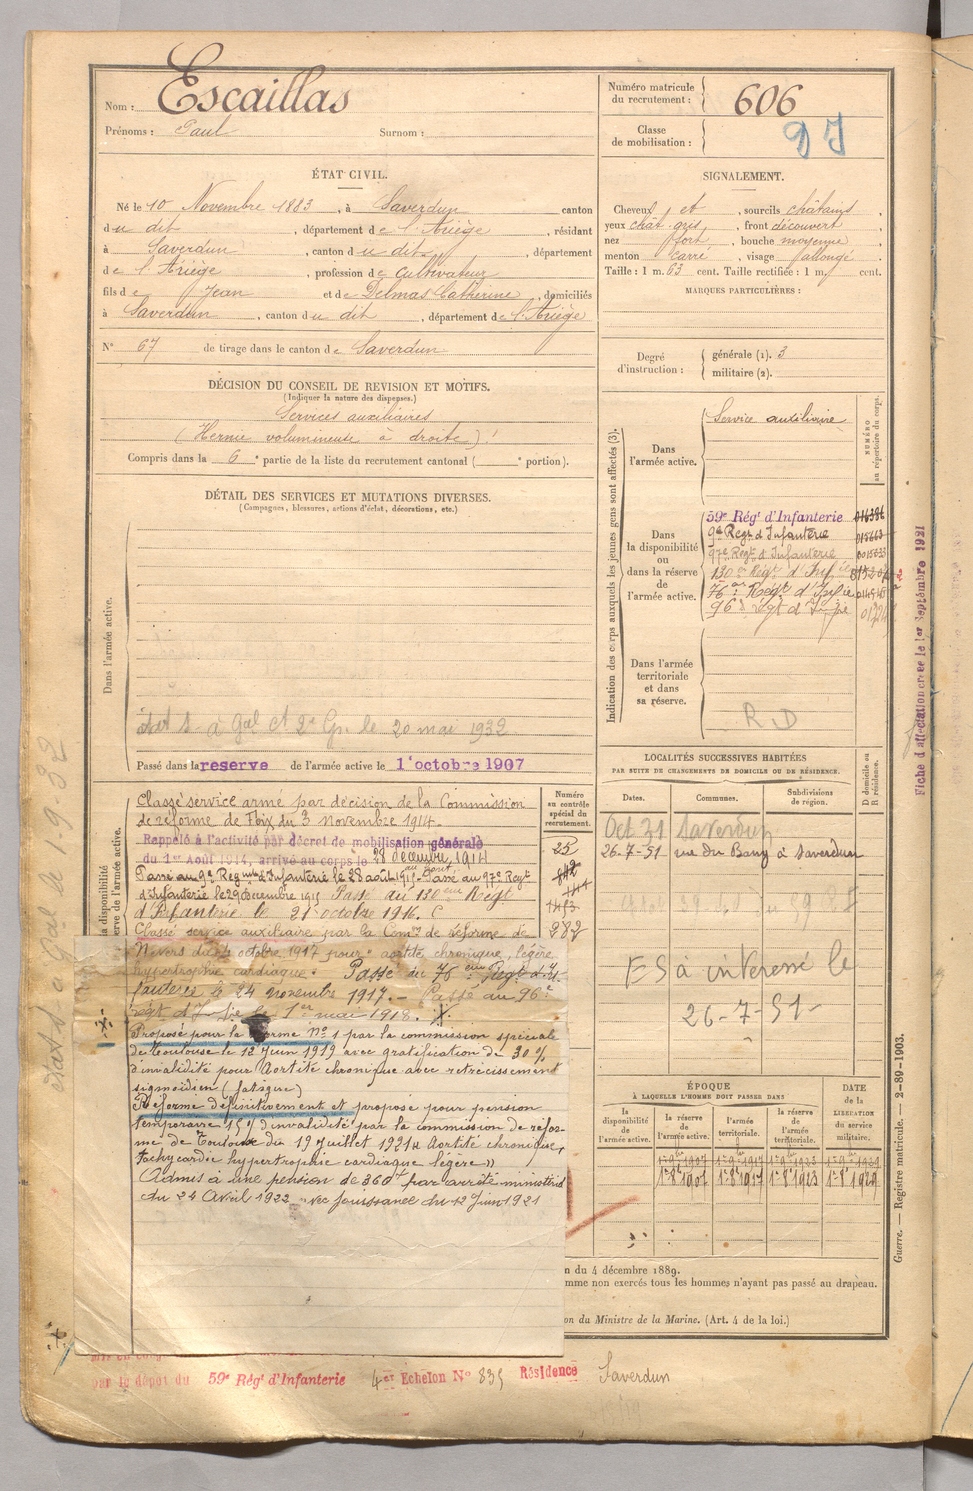 Nom : Escaillas
Prénoms : Paul Surnom :
Numéro matricule
du recrutement : 606
Classe
de mobilisation :
ÉTAT CIVIL.
Né le 10 Novembre 1883, à Saverdun canton
du dit, département de l'Ariège, résidant
à Saverdun, canton du dit, département
de l'Ariège, profession de cultivateur
fils de Jean et de Delmas Catherine, domiciliés
à Saverdun, canton du dit, département de l'Ariège
N° 67 de tirage dans le canton de Saverdun
SIGNALEMENT.
Cheveux et, sourcils châtains,
yeux chât. gris, front découvert
nez fort, bouche moyenne
menton carré, visage allongé
Taille : 1 m. 63 cent. Taille rectifiée : 1 m. cent.
MARQUES PARTICULIÈRES :
Degré
d'instruction :
générale (1). 3
militaire (2).
DÉCISION DU CONSEIL DE REVISION ET MOTIFS.
(Indiquer la nature des dispenses.)
Services auxiliaires
(Hernie volumineuse à droite)
Compris dans la 6e partie de la liste du recrutement cantonal ( e portion).
DÉTAIL DES SERVICES ET MUTATIONS DIVERSES.
(Campagnes, blessures, actions d'éclat, décorations, etc.)
Dans l'armée active.
à Gal et 2e Gr. le 20 mai 1932
Passé dans la reserve de l'armée active le 1 octobre 1907
Indication des corps auxquels les jeunes gens sont affectés (3).
NUMÉRO
au répertoire du corps.
Dans
l'armée active.
Service auxiliaire
Dans
la disponibilité
ou
dans la réserve
de
l'armée active.
59e Régt d'Infanterie
9e Regt d'Infanterie
97e Regt d'Infanterie
130e Régt d'Infie
76e Régt d'Infie
96e régt d'Infie
Dans l'armée
territoriale
et dans
sa réserve.
R D
Fiche d'affectation créée le 1er Septembre 1921
LOCALITÉS SUCCESSIVES HABITÉES
PAR SUITE DE CHANGEMENTS DE DOMICILE OU DE RÉSIDENCE.
Dates. Communes. Subdivisions
de région.
D domicile ou
R résidence.
Oct 31 Saverdun
26-7-51 rue du Bany à Saverdun
FS à interessé le
26-7-51-
Numéro
au contrôle
spécial du
recrutement.
25
282
Classé service armé par décision de la Commission
de réforme de Foix du 3 novembre 1914.
Rappelé à l'activité par décret de mobilisation générale
du 1er Août 1914, arrivé au corps le 28 décembre 1914
Passé au 9e Regiment d'Infanterie le 28 août 1915. Passé au 97e Regt
d'Infanterie le 29 décembre 1915 Passé au 130eme Regt
d'Infanterie le 21 octobre 1916.
Classé service auxiliaire par la Comon de réforme de
Nevers du 4 octobre 1917 pour « aortite chronique, légère
hypertrophie cardiaque » Passé au 76eme Regt d'In-
fanterie le 24 novembre 1917. — Passé au 96e
régt d'Infie le 1er mai 1918.
Proposé pour la réforme N° 1 par la commission spéciale
de Toulouse le 12 Juin 1919 avec gratification de 30 %
d'invalidité pour Aortite chronique avec rétrécissement
sigmoïdien (fatigue)
Réformé définitivement et proposé pour pension
temporaire 15% d'invalidité par la commission de réfor-
me de Toulouse du 19 Juillet 1921 « Aortite chronique,
tachycardie hypertrophie cardiaque légère »
Admis à une pension de 360f par arrêté ministériel
du 24 Avril 1922 avec jouissance du 12 Juin 1921
ÉPOQUE
À LAQUELLE L'HOMME DOIT PASSER DANS
la
disponibilité
de
l'armée active.
la réserve
de
l'armée active.
l'armée
territoriale.
la réserve
de
l'armée
territoriale.
DATE
de la
LIBÉRATION
du
service
militaire.
1-8-1907 1-8-1917 1-8-1923 1-8-1929
n du 4 décembre 1889.
mme non exercés tous les hommes n'ayant pas passé au drapeau.
on du Ministre de la Marine. (Art. 4 de la loi.)
Guerre. — Registre matricule. — 2-89-1903.
par le dépôt du 59e Régt d'Infanterie 4er Echelon N° 835 Résidence Saverdun